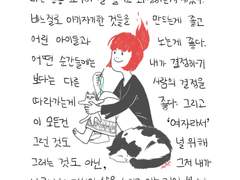 바느질로 아기자기한 것들을 만드는게 좋고
어린 아이들과 노는게 좋다.
어떤 순간들에는 내가 결정하기
보다는 다른 사람의 결정을
따라가는게 좋다. 그리고
이 모든건 '여자라서'
그런 것도 널 위해
그러는 것도 아닌, 그저 내가